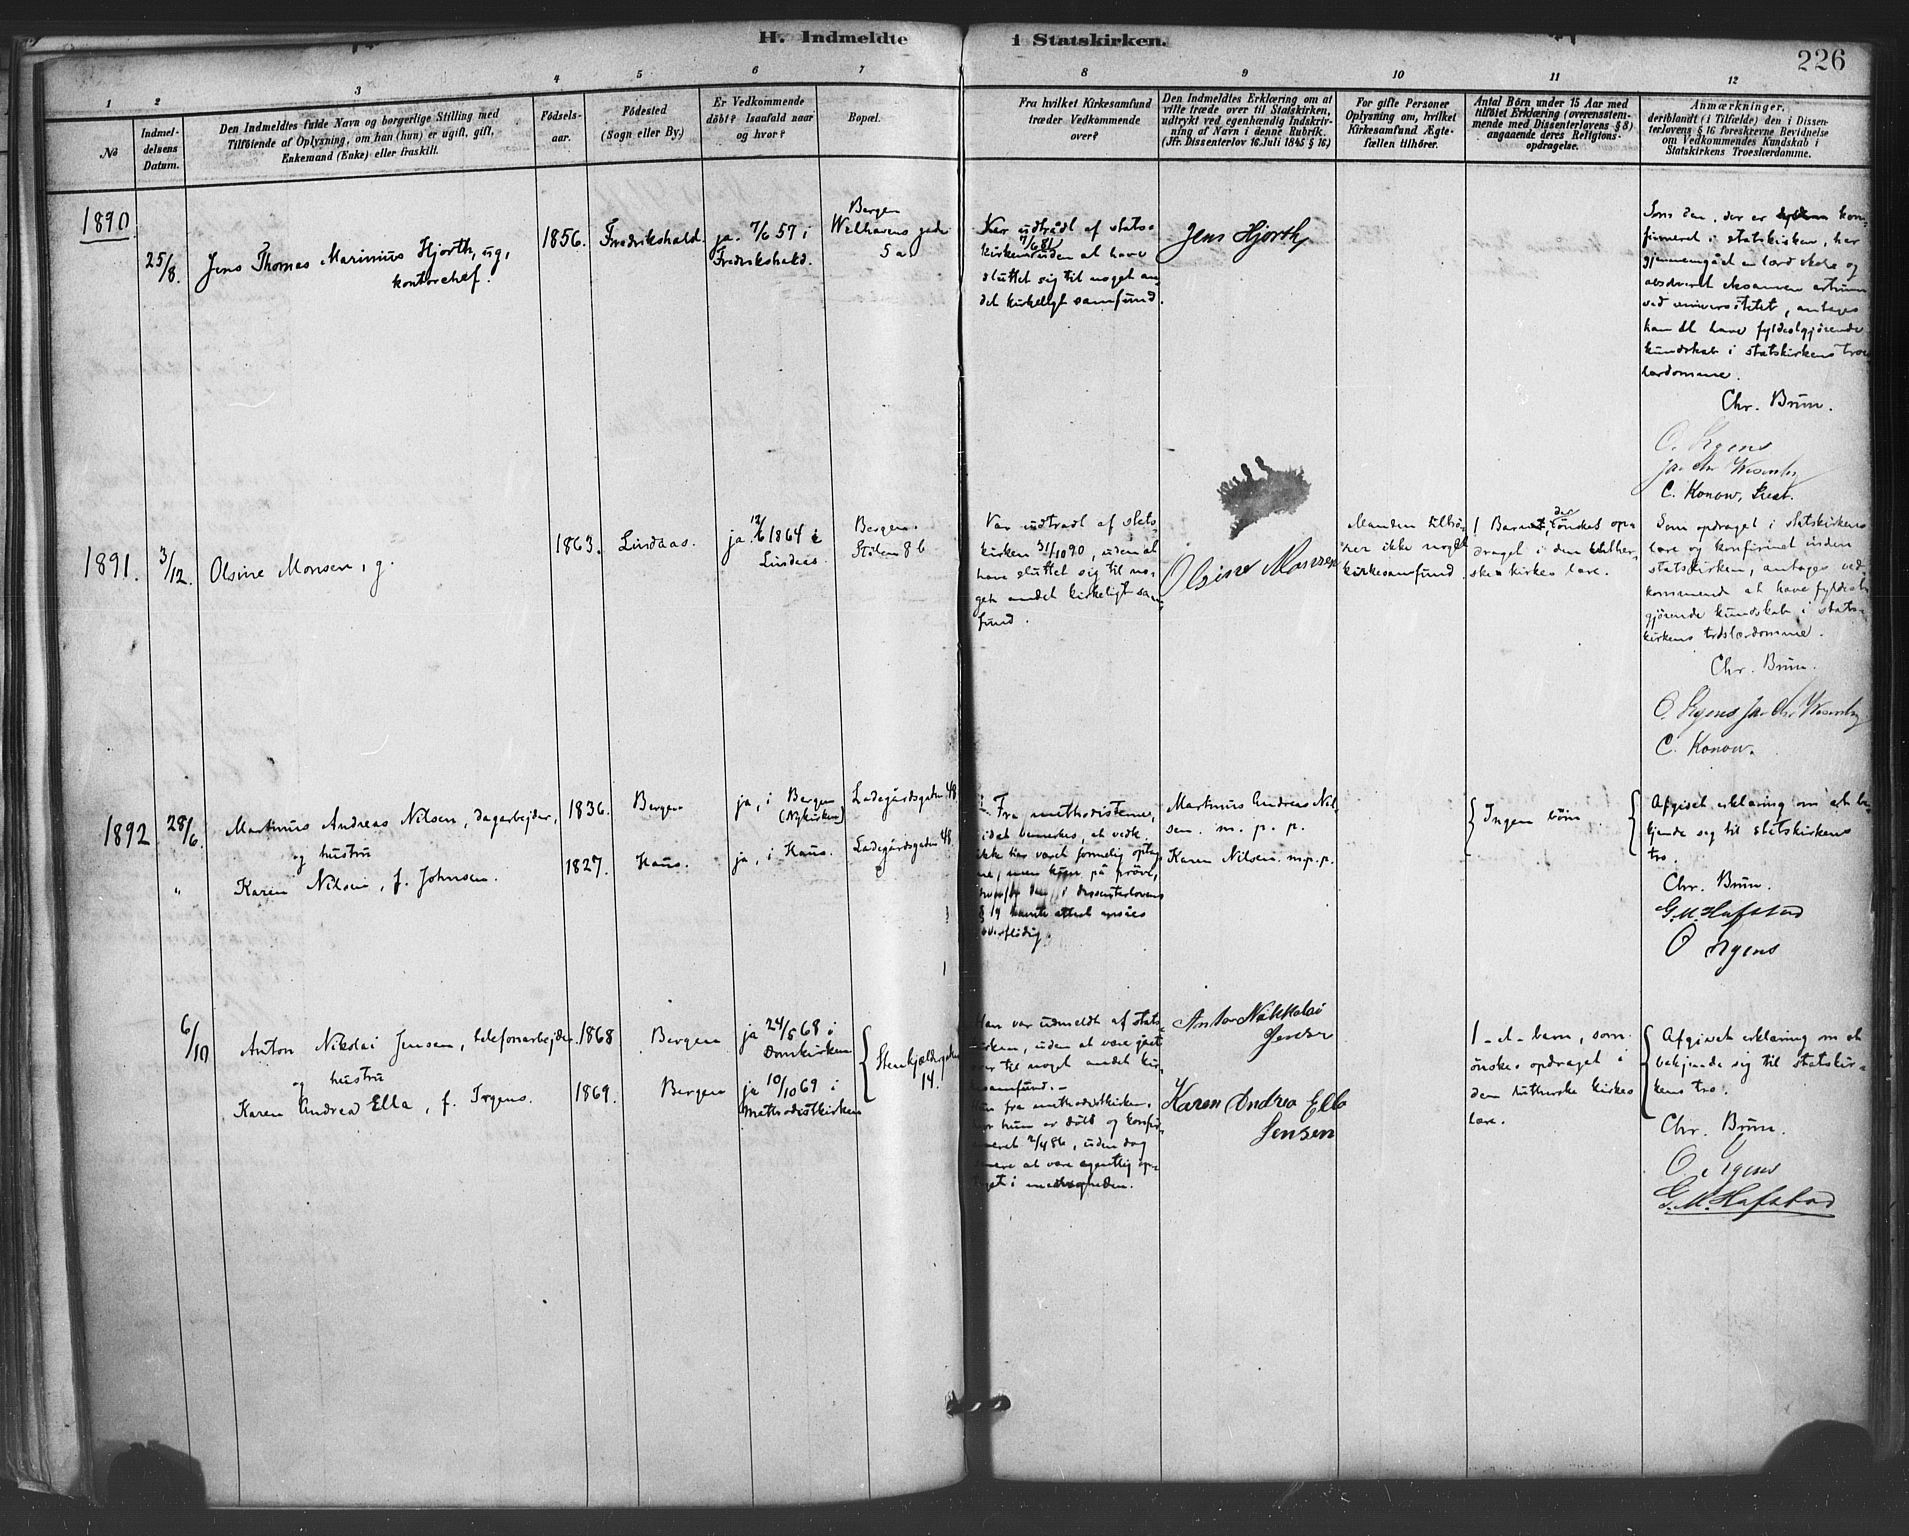 H. Indmeldte i Statskirken.
226
1 2 3 4 5 6 7 8 9 10 11 12
No
Indmel-
delsens
Datum.
Den Indmeldtes fulde Navn og borgerlige Stilling med
Tilföiende af Oplysning, om han (hun) er ugift, gift,
Enkemand (Enke) eller fraskilt.
Födsels-
aar.
Födested
(Sogn eller By.)
Er Vedkommende
döbt? Isaafald naar
og hvor?
Bopæl.
Fra hvilket Kirkesamfund
træder Vedkommende
over?
Den Indmeldtes Erklæring om at
ville træde over til Statskirken,
udtrykt ved egenhændig Indskriv-
ning af Navn i denne Rubrik.
(Jfr. Dissenterlov 16 Juli 1845 § 16.)
For gifte Personer
Oplysning om, hvilket
Kirkesamfund Ægte-
fællen tilhörer.
Antal Börn under 15 Aar med
tilföiet Erklæring (overensstem-
mende med Dissenterlovens § 8)
angaaende deres Religions-
opdragelse.
Anmærkninger,
deriblandt (i Tilfælde) den i Dissen-
terlovens § 16 foreskrevne Bevidnelse
om Vedkommendes Kundskab i
Statskirkens Troeslærdomme.
1890.
25/8.
Jens Thomas Marinius Hjorth, ug,
kontorchef.
1856.
Fredrikshald.
ja. 7/6 57 i
Fredrikshald.
Bergen
Welhavens gade
5 a
Har udtrådt af stats-
kirken 7/6 81 uden at have
sluttet sig til noget an-
det kirkeligt samfund.
Jens Hjorth
Som den, der er kon-
firmeret i statskirken, har
gjennemgået en lærd skole og
absolveret eksamen artium
ved universitetet, antages
han at have fyldestgjørende
kundskab i statskirkens tros-
lærdomme.
Chr. Brun.
O. Irgens
C. Konow,
1891.
3/12.
Olsine Monsen, g.
1863.
Lindaas.
ja 12/6 1864 i
Lindaas.
Bergen.
Stølen 8 b
Var udtradt af stats-
kirken 31/10 90, uden at
have sluttet sig til no-
get andet kirkeligt sam-
fund.
Olsine Monsen
Manden tilhø-
rer ikke noget
kirkesamfund.
1 Barn, der ønskes op-
draget i den luther-
ske kirkes lære.
Som opdraget i statskirkens
lære og konfirmeret inden
statskirken, antages ved-
kommende at have fyldest-
gjørende kundskab i stats-
kirkens troslærdomme.
Chr. Brun.
O. Irgens
C. Konow.
1892
28/6.
Martinus Andreas Nilsen, dagarbejder,
og hustru
"
Karen Nilsen, f. Johnsen.
1836.
1827.
Bergen
Haus.
ja, i Bergen
(Nykirken)
ja, i Haus.
Ladegårdsgaden 48.
Ladegårdsgaden 48.
Fra methodisterne,
idet bemerkes, at vedk.
ikke har været formelig optag-
ne, men kun på prøve,
i dissenterlovens
§ 19 attest ansåes
overflødig.
Martinus Andreas Nil-
sen. m. p. p.
Karen Nilsen. m.p.p.
Ingen børn
Afgivet erklæring om at be-
kjende sig til statskirkens
tro.
Chr. Brun.
G. M. Hafstad
O Irgens
6/10
Anton Nikolai Jensen, telefonarbejder
og hustru
Karen Andrea Ella, f. Irgens.
1868
1869.
Bergen
Bergen
ja 24/5 68 i
Domkirken
ja 10/10 69 i
Methodistkirken
Stenkjældergaden
14.
Han var udmeldt af stats-
kirken, uden at være gået
over til noget andet kir-
kesamfund.-
Hun fra methodistkirken,
hvor hun er døbt og konfir-
meret 2/4 86, uden dog
senere at være egentlig op-
taget i menigheden.
Anton Nikkolai
Jensen
Karen Andrea Ella
Jensen
1 - et - barn, som
ønskes opdraget i
den lutherske kirkes
lære.
Afgivet erklæring om at
bekjende sig til statskir-
kens tro.
Chr. Brun.
O. Irgens
G. M. Hafstad